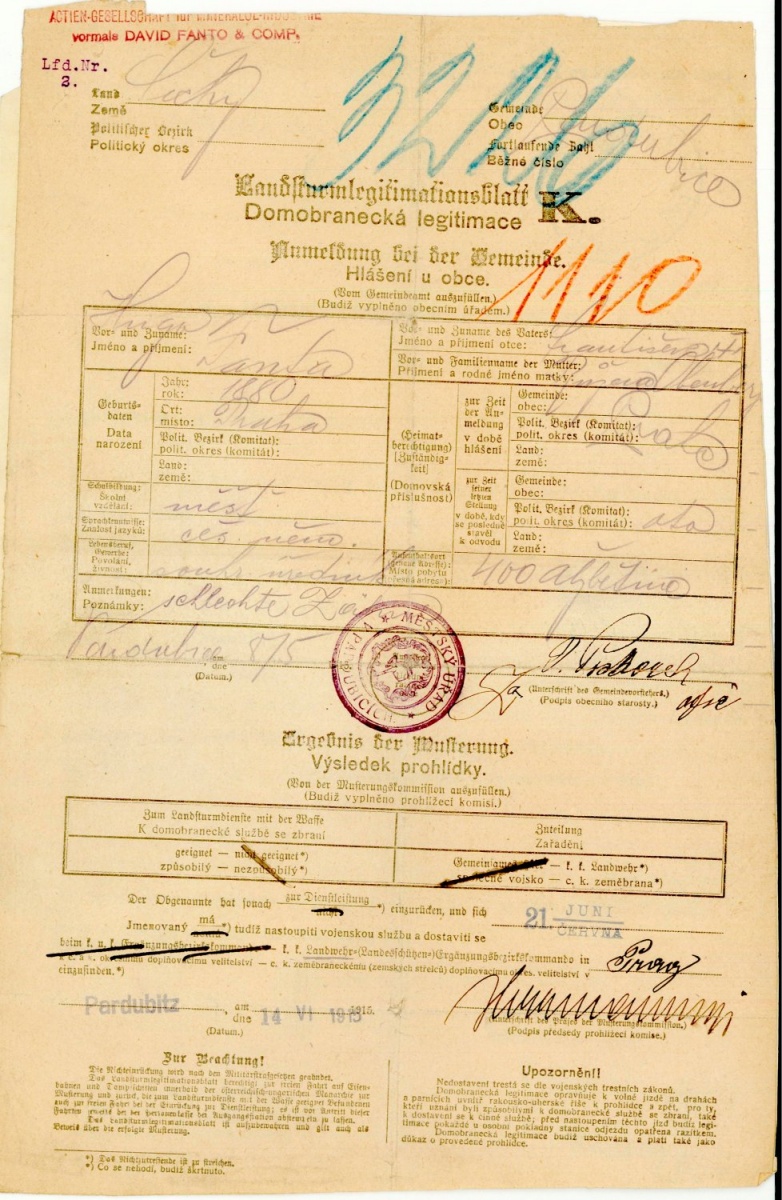 ACTIEN-GESELLSCHAFT für MINERALÖL-INDUSTRIE
vormals DAVID FANTO & COMP.
Lfd.Nr.
3.
3226
Land
Země
Čechy
Politischer Bezirk
Politický okres
Gemeinde
Obec
Pardubice
Fortlaufende Zahl
Běžné číslo
Landsturmlegitimationsblatt
Domobranecká legitimace
K.
Anmeldung bei der Gemeinde.
Hlášení u obce.
1110
(Vom Gemeindeamt auszufüllen.)
(Budiž vyplněno obecním úřadem.)
Vor- und Zuname:
Jméno a příjmení:
Hugo
Vor- und Zuname des Vaters:
Jméno a příjmení otce:
František
Vor- und Familienname der Mutter:
Příjmení a rodné jméno matky:
Geburts-
daten
Data
narození
Jahr:
rok:
1880
Ort:
místo:
Praha
Polit. Bezirk (Komitat):
polit. okres (komitát):
Land:
země:
(Heimat-
berechtigung)
[Zuständig-
keit]
(Domovská
příslušnost)
zur Zeit
der An-
meldung
v době
hlášení
Gemeinde:
obec:
Polit. Bezirk (Komitat):
polit. okres (komitát):
Land:
země:
zur Zeit
seiner
letzten
Stellung
v době, kdy
se posledně
stavěl
k odvodu
Gemeinde:
obec:
Polit. Bezirk (Komitat):
polit. okres (komitát):
Land:
země:
Schulbildung:
Školní
vzdělání:
měšť
Sprachkenntnisse:
Znalost jazyků:
čes. něm.
Lebensberuf,
Gewerbe:
Povolání,
živnost:
soukr. úředník
Aufenthaltsort
(genaue Adresse):
Místo pobytu
(přesná adresa):
400
Anmerkungen:
Poznámky:
schlechte
Pardubice 8/5
am
dne
(Datum.)
MĚSTSKÝ ÚŘAD
V PARDUBICÍCH
(Unterschrift des Gemeindevorstehers.)
(Podpis obecního starosty.)
Ergebnis der Musterung.
Výsledek prohlídky.
(Von der Musterungskommission auszufüllen.)
(Budiž vyplněno prohlížecí komisí.)
Zum Landsturmdienste mit der Waffe
K domobranecké službě se zbraní
Zuteilung
Zařadění
geeignet — nicht geeignet*)
způsobilý — nezpůsobilý*)
Gemeinsames Heer — k. k. Landwehr*)
Společné vojsko — c. k. zeměbrana*)
Der Obgenannte hat sonach zur Dienstleistung nicht*) einzurücken, und sich
21. JUNI
ČERVNA
Jmenovaný má *) tudíž nastoupiti vojenskou službu a dostaviti se
beim k. u. k. Ergänzungsbezirkskommando — k. k. Landwehr-(Landesschützen-)Ergänzungsbezirkskommando in
k c. a k. okresnímu doplňovacímu velitelství — c. k. zeměbraneckému (zemských střelců) doplňovacímu okres. velitelství v
Prag
einzufinden.*)
Pardubitz
am
dne
14 VI 1915
1915.
(Datum.)
(Unterschrift des Präses der Musterungskommission.)
(Podpis předsedy prohlížecí komise.)
Zur Beachtung!
Die Nichteinrückung wird nach den Militärstrafgesetzen geahndet.
Das Landsturmlegitimationsblatt berechtigt zur freien Fahrt auf Eisen-
bahnen und Dampfschiffen innerhalb der österreichisch-ungarischen Monarchie zur
Musterung und zurück, die zum Landsturmdienste mit der Waffe geeignet Befundenen
auch zur freien Fahrt bei der Einrückung zur Dienstleistung; es ist vor Antritt dieser
Fahrten jeweils bei der Personenkasse der Ausgangsstation abstempeln zu lassen.
Das Landsturmlegitimationsblatt ist aufzubewahren und gilt auch als
Beweis über die erfolgte Musterung.
*) Das Nichtzutreffende ist zu streichen.
*) Co se nehodí, budiž škrtnuto.
Upozornění!
Nedostavení trestá se dle vojenských trestních zákonů.
Domobranecká legitimace opravňuje k volné jízdě na drahách
a parnících uvnitř rakousko-uherské říše k prohlídce a zpět, pro ty,
kteří uznáni byli způsobilými k domobranecké službě se zbraní, také
k dostavení se k činné službě; před nastoupením těchto jízd budiž legi-
timace pokaždé u osobní pokladny stanice odjezdu opatřena razítkem.
Domobranecká legitimace budiž uschována a platí také jako
důkaz o provedené prohlídce.